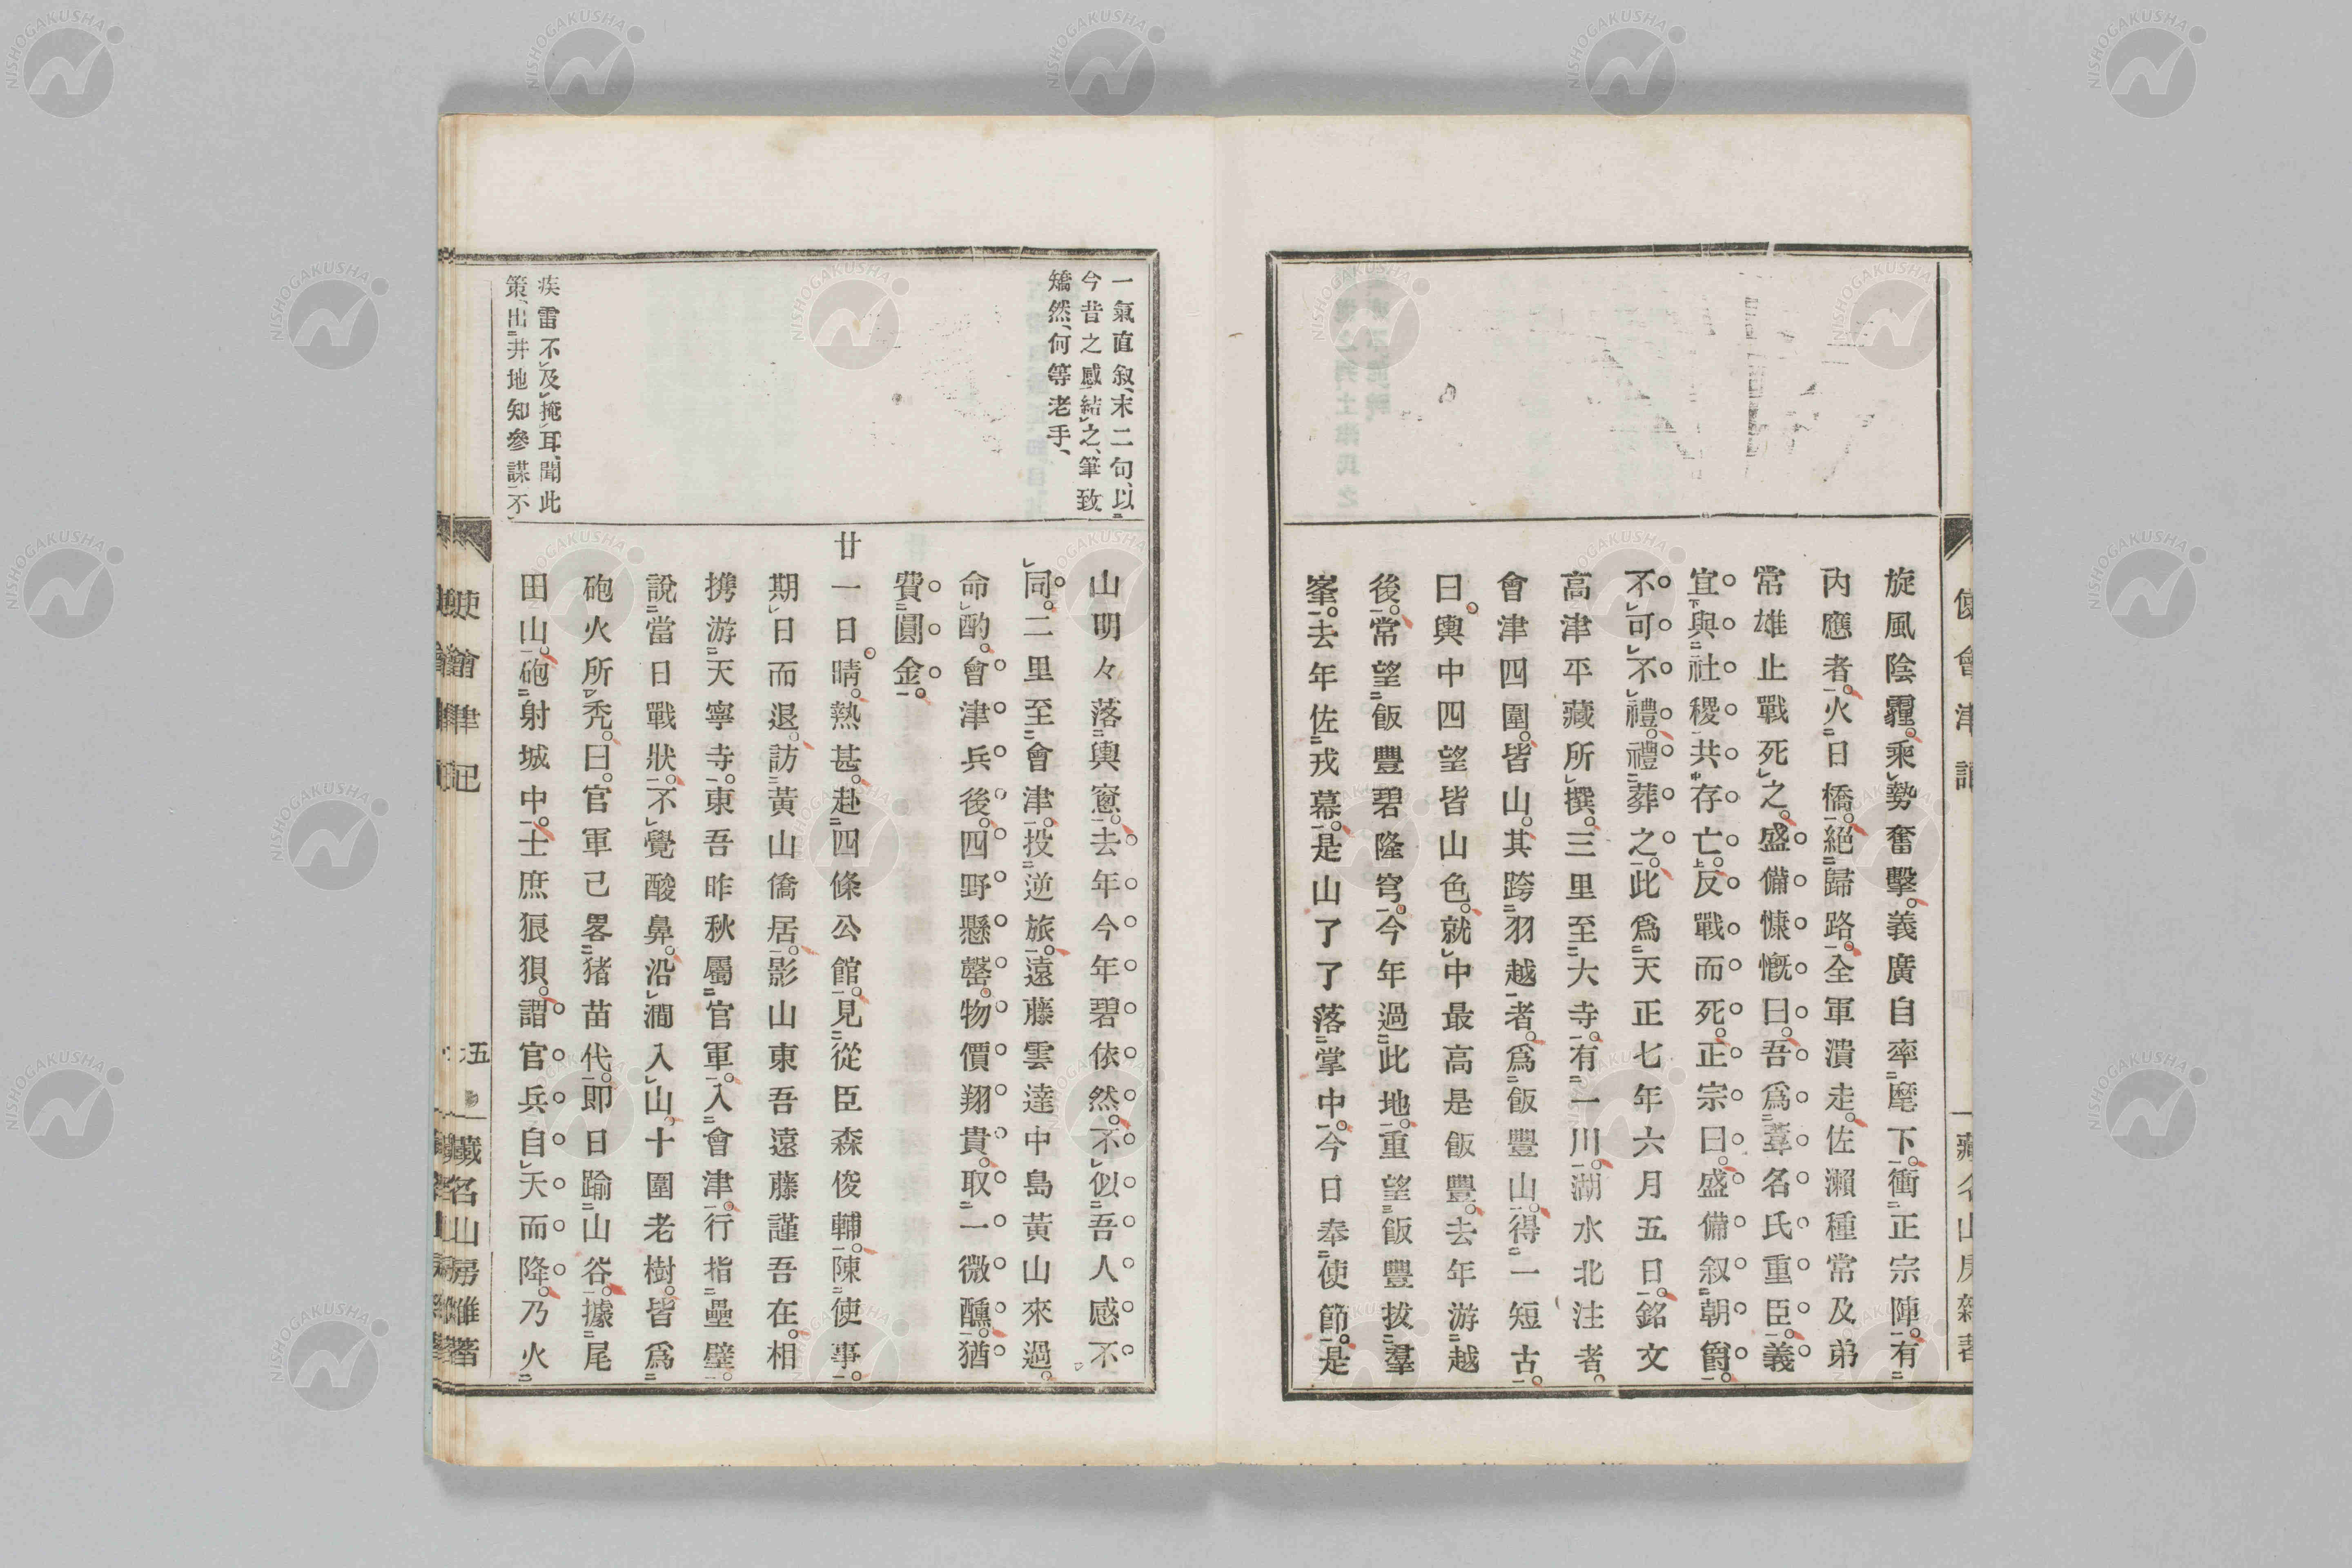 旋風陰霾。乘勢奮擊。義廣自率麾下。衝正宗陣。有
內應者。火日橋。絕歸路。全軍潰走。佐瀨種常及弟
常雄止戰死之。盛備慷慨曰。吾爲葦名氏重臣。義
宜與社稷共存亡。反戰而死。正宗曰。盛備叙朝爵。
不可不禮。禮葬之。此爲天正七年六月五日。銘文
高津平藏所撰。三里至大寺。有一川。湖水北注者。
會津四圍。皆山。其跨羽越者。爲飯豐山。得一短古。
曰。輿中四望皆山色。就中最高是飯豐。去年游越
後。常望飯豐碧隆穹。今年過此地。重望飯豐拔羣
峯。去年佐戎幕。是山了了落掌中。今日奉使節。是
一氣直叙、末二句、以
今昔之感結之、筆致
矯然、何等老手、
山明々落輿窻。去年今年碧依然。不似吾人感不
同。二里至會津。投逆旅。遠藤雲達中島黃山來過。
命酌。會津兵後。四野懸罄。物價翔貴。取一微醺。猶
費圓金。
廿一日。晴。熱甚。赴四條公館。見從臣森俊輔。陳使事。
期日而退。訪黃山僑居。影山東吾遠藤謹吾在。相
携游天寧寺。東吾昨秋屬官軍。入會津。行指壘壁。
說當日戰狀。不覺酸鼻。沿澗入山。十圍老樹。皆爲
砲火所禿。曰。官軍已畧猪苗代。即日踰山谷。據尾
田山。砲射城中。士庶狼狽。謂官兵自天而降。乃火
疾雷不及掩耳、聞此
策、出井地知參謀、不
使會津記
五
藏名山房雜著